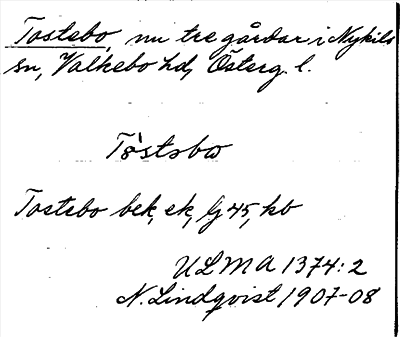 Tostebo, nu tre gårdar i Nykils
sn, Valkebo hd, Österg. l.
Tostebo bek, ek, lg 45, kb
ULMA 1374:2
N. Lindqvist 1907-08